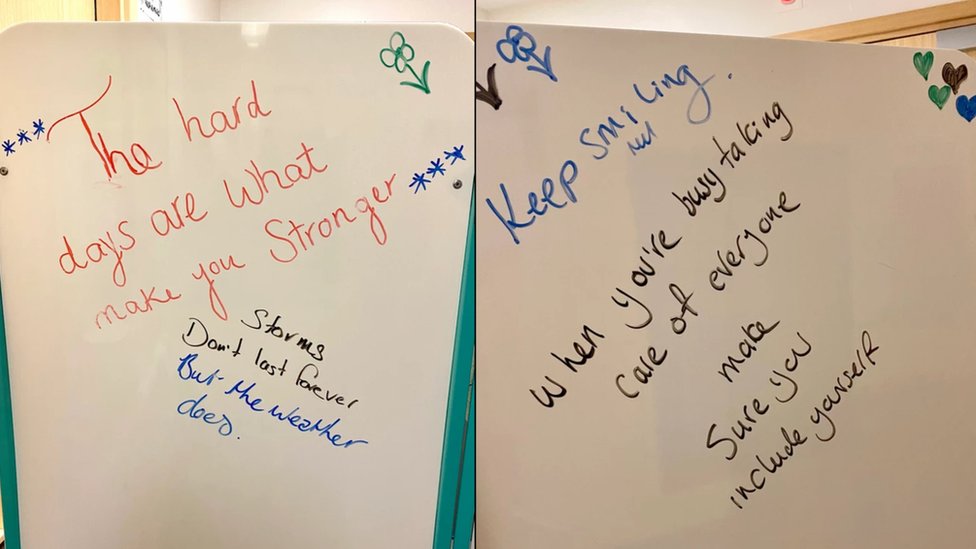 The hard
days are what
make you Stronger
Storms
Don't last forever
But the weather
does.
Keep smiling.
When you're busy taking
care of everyone
make
Sure you
include yourself